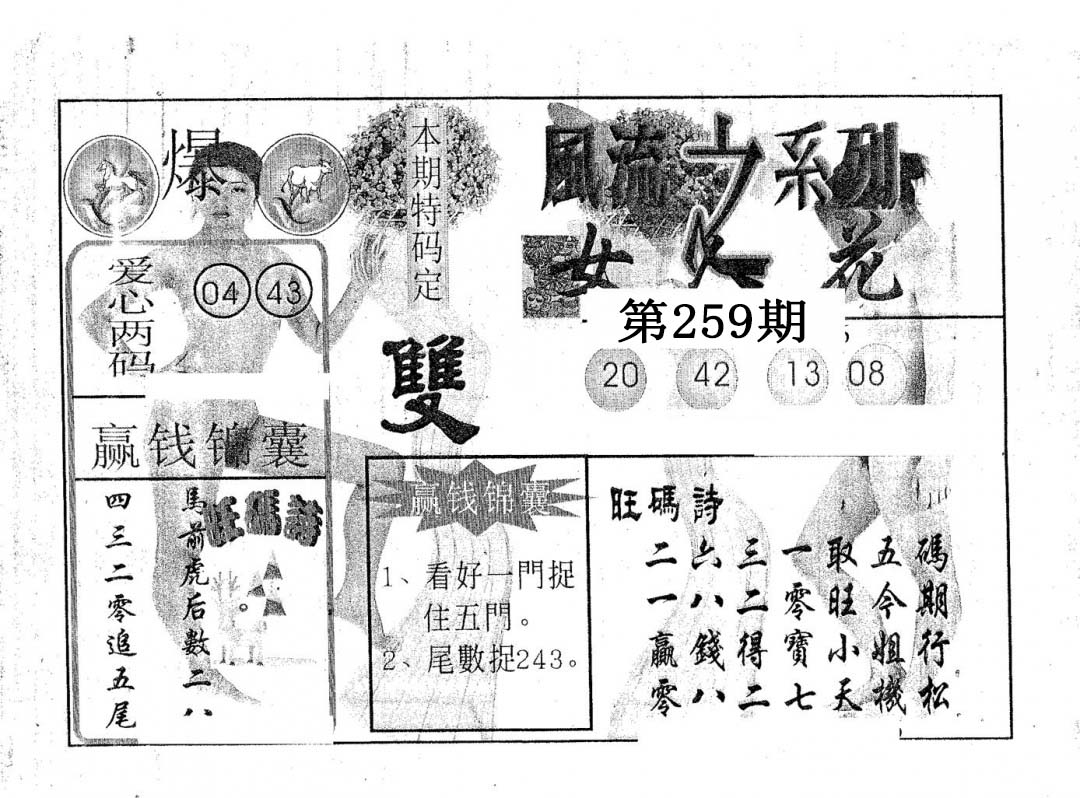 爆
爱心两码
04 43
赢钱锦囊
旺碼詩
馬前虎后數二八
四三二零追五尾
本期特码定
雙
風流之系列
女人花
第259期
20 42 13 08
赢钱锦囊
1、看好一門捉
住五門。
2、尾數捉243。
旺碼詩
二六三一取五碼
一八二零旺今期
贏錢得寶小姐行
零八二七天機松